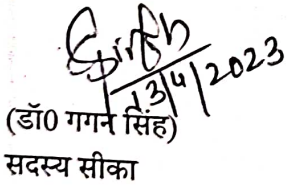 Singh
13/4/2023
(डॉ0 गगन सिंह)
सदस्य सीका